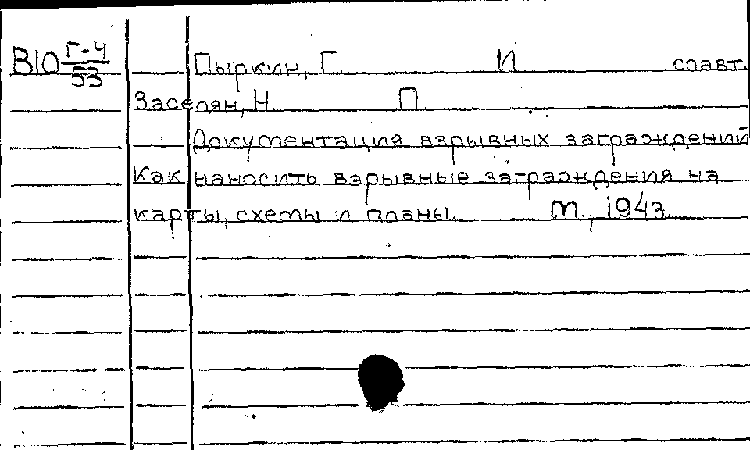 В10 Г-4/53 Пыркин, Г. И соавт.
Заселян, Н. П
Документация взрывных заграждений
Как наносить взрывные заграждения на
карты, схемы и планы. М., 1943